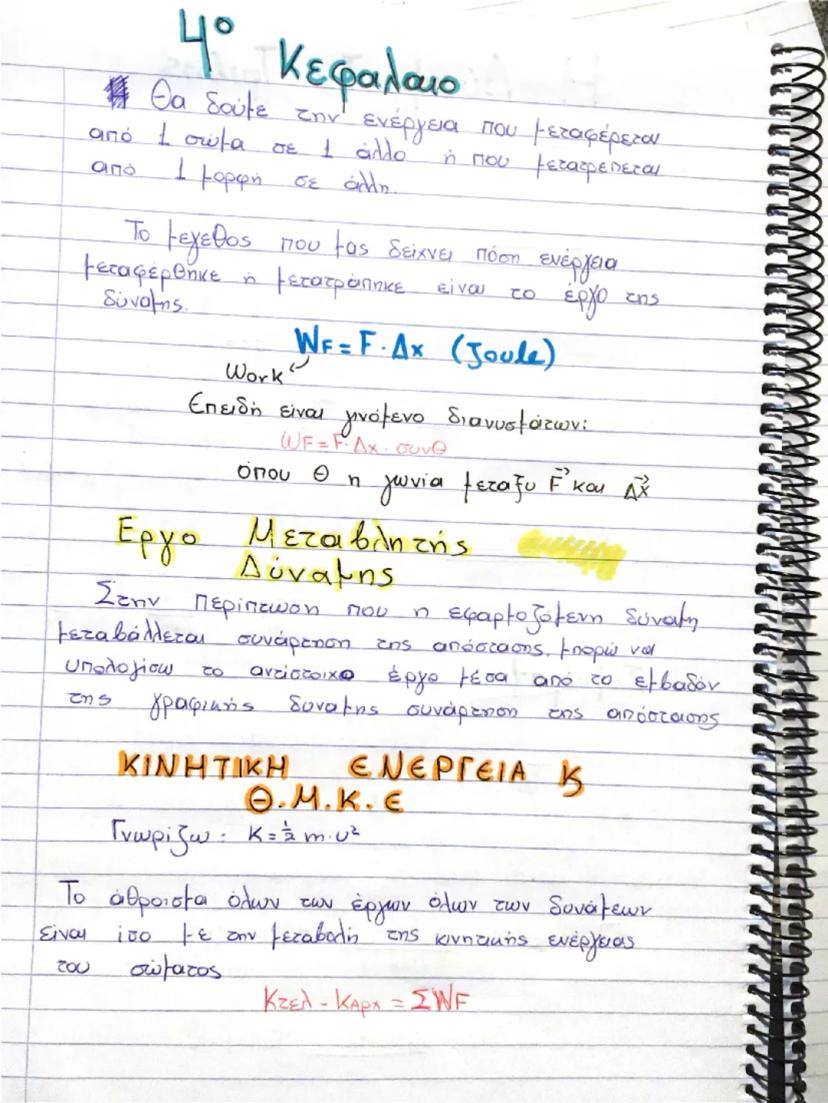 4ο Κεφαλαιο
Θα δούμε την ενέργεια που μεταφέρεται
από 1 σώμα σε 1 άλλο ή που μετατρέπεται
από 1 μορφή σε άλλη.
Το μεγεθος που μας δείχνει πόση ενέργεια
μεταφέρθηκε ή μετατράπηκε είναι το έργο της
δύναμης.
WF = F · Δx (Joule)
Work
Επειδή είναι γινόμενο διανυσμάτων:
WF = F · Δx · συνθ
όπου θ η γωνία μεταξυ F⃗ και Δx⃗
Εργο Μεταβλητής
Δύναμης
Στην περίπτωση που η εφαρμοζόμενη δύναμη
μεταβάλλεται συνάρτηση της απόστασης, μπορώ να
υπολογίσω το αντίστοιχο έργο μέσα από το εμβαδόν
της γραφικής δύναμης συνάρτηση της απόστασης
ΚΙΝΗΤΙΚΗ ΕΝΕΡΓΕΙΑ ϗ
Θ.Μ.Κ.Ε
Γνωρίζω: K = ½ m · υ²
Το άθροισμα όλων των έργων όλων των δυνάμεων
είναι ίσο με την μεταβολή της κινητικής ενέργειας
του σώματος
Kτελ - Kαρχ = ΣWF